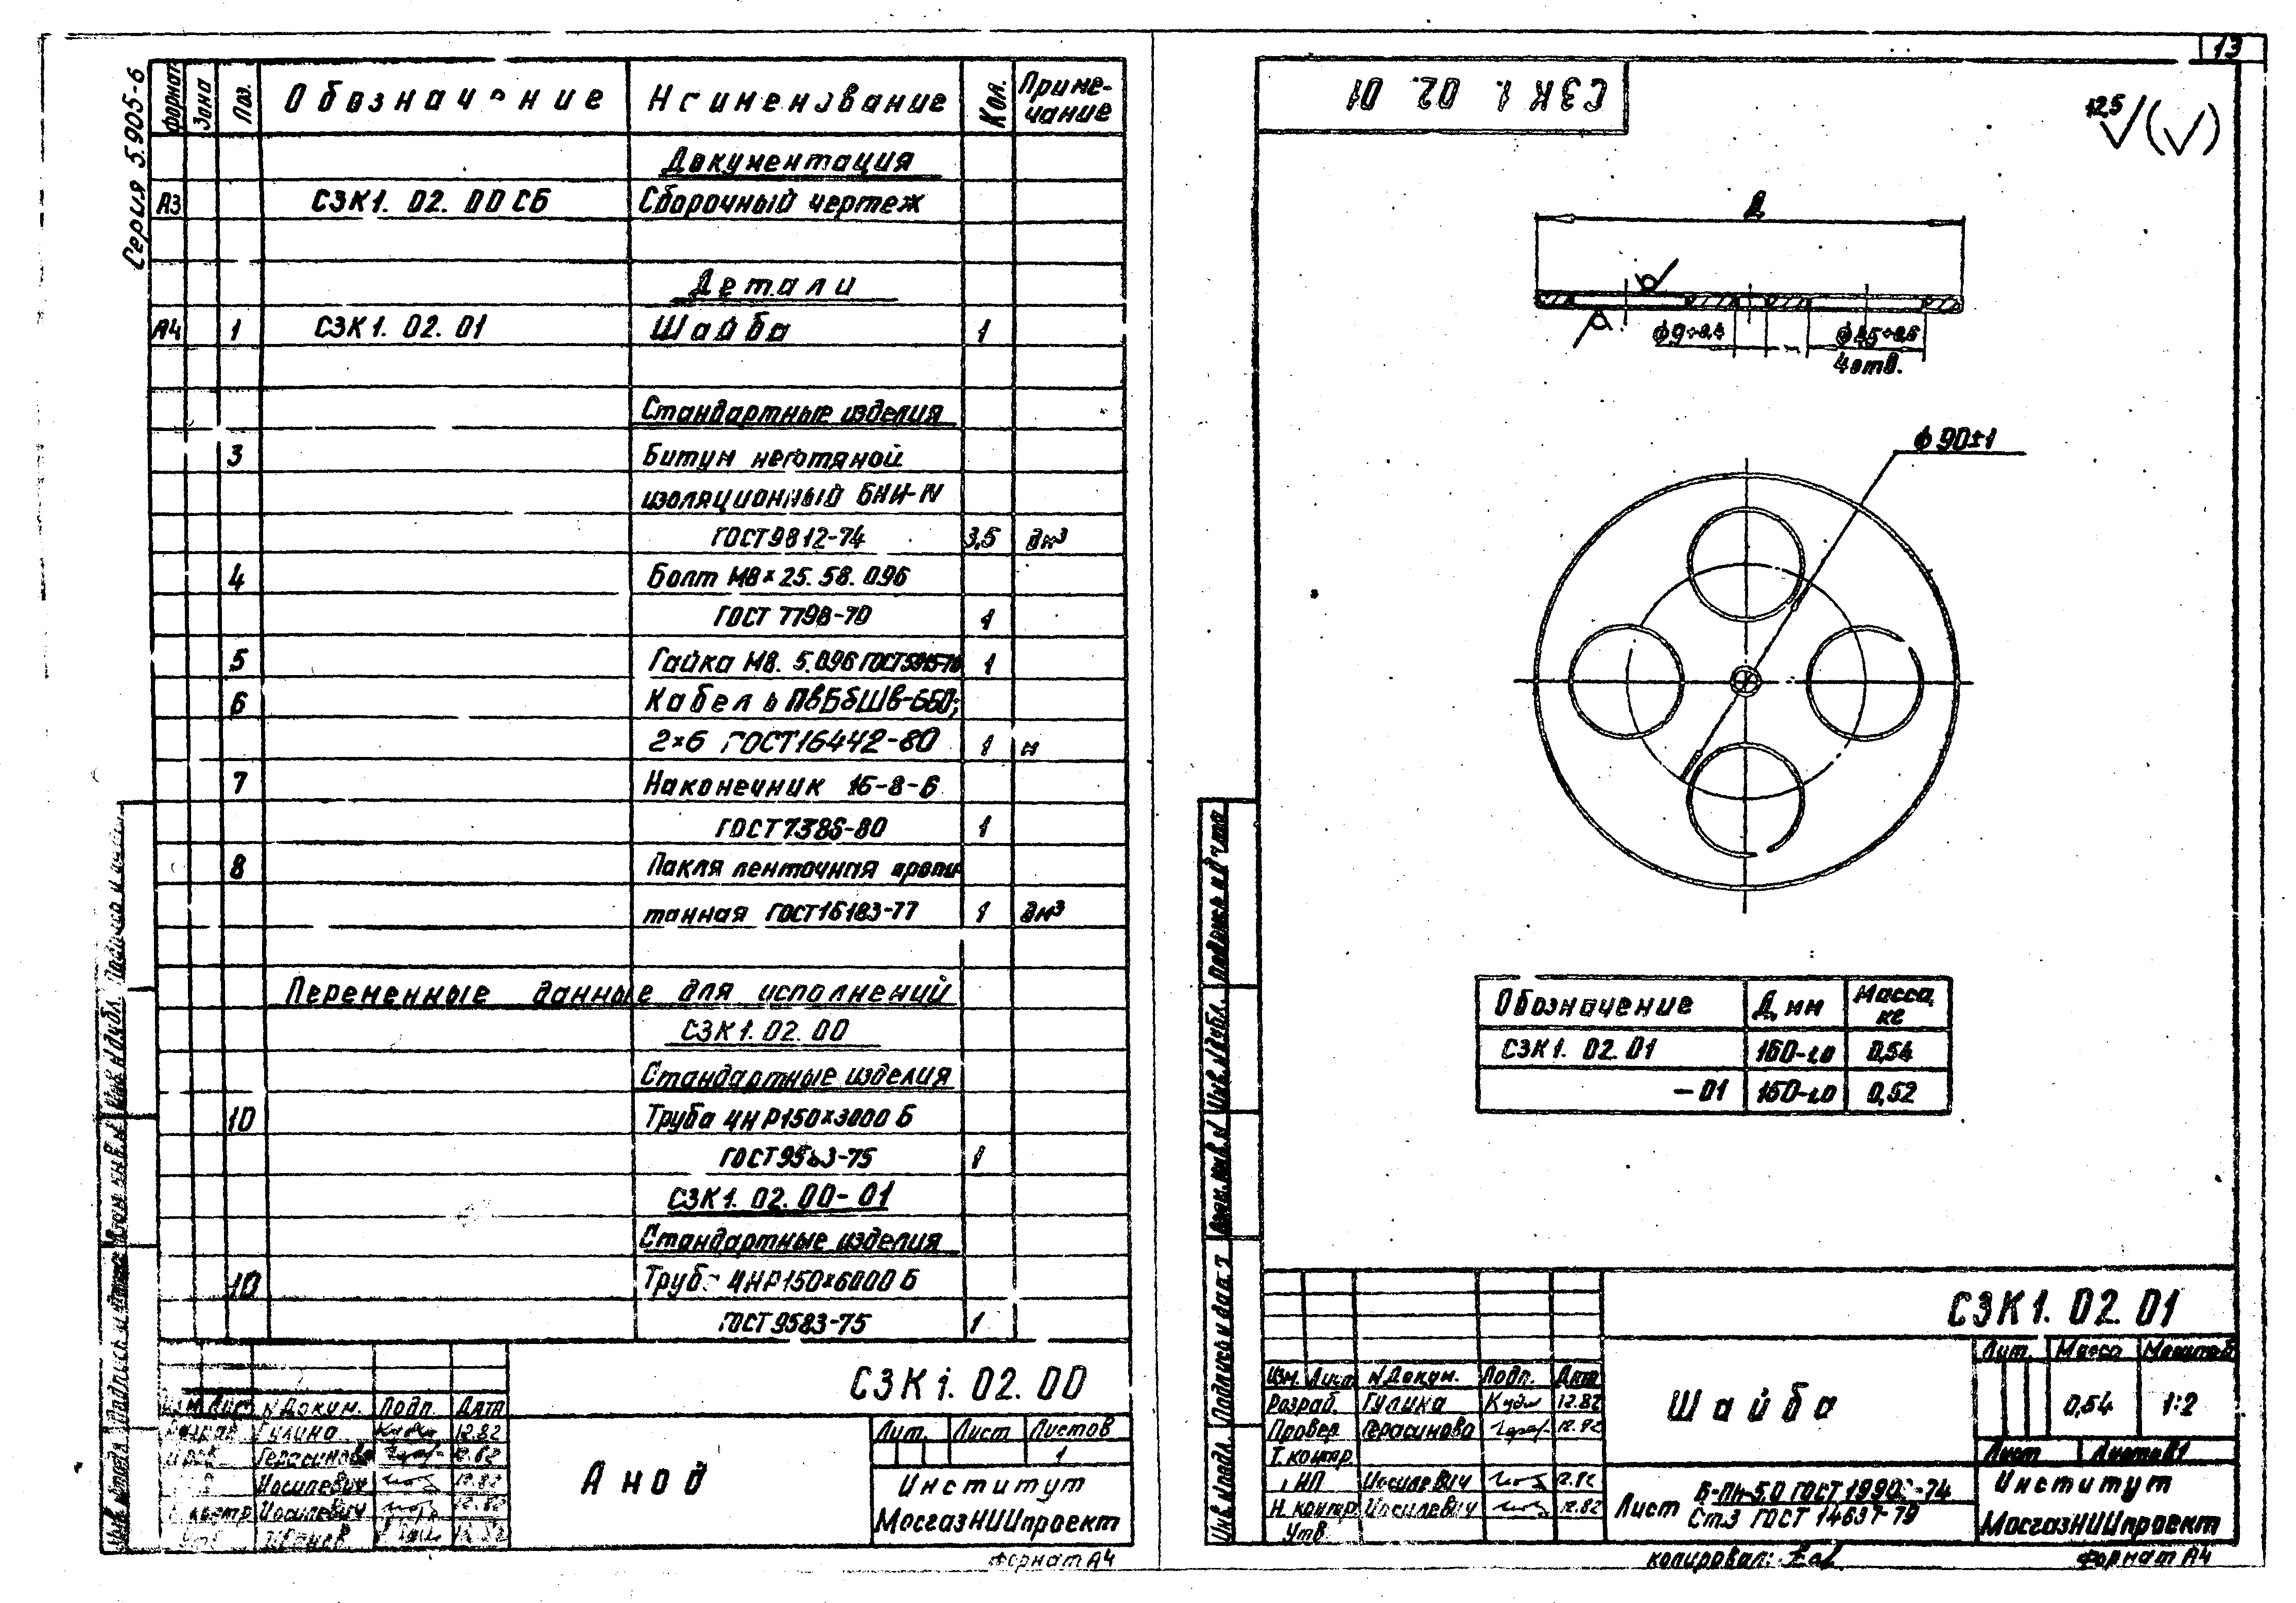 13
Серия 5.905-6
Формат Зона Поз. Обозначение Наименование Кол. Примечание
Документация
А3 СЗК1. 02. 00 СБ Сборочный чертеж
Детали
А4 1 СЗК1. 02. 01 Шайба 1
Стандартные изделия
3 Битум нефтяной
изоляционный БНИ-IV
ГОСТ 9812-74 3,5 дм³
4 Болт М8×25. 58. 096
ГОСТ 7798-70 1
5 Гайка М8. 5.096 ГОСТ 5915-70 1
6 Кабель ПвБбШв-660;
2×6 ГОСТ 16442-80 1 м
7 Наконечник 16-8-6
ГОСТ 7386-80 1
8 Пакля ленточная пропи
танная ГОСТ 16183-77 1 дм³
Переменные данные для исполнений
СЗК1. 02. 00
Стандартные изделия
10 Труба ЧНР150×3000 Б
ГОСТ 9583-75 1
СЗК1. 02. 00-01
Стандартные изделия
10 Труба ЧНР150×6000 Б
ГОСТ 9583-75 1
СЗК1. 02. 00
Изм. Лист N Докум. Подп. Дата
Разраб Гулина 12.82
Пров Герасимова 12.82
Иосилевич 12.82
Н.контр Иосилевич 12.82
Утв 12.82
Анод
Лит. Лист Листов
1
Институт
МосгазНИИпроект
Формат А4
Инв. N подл. Подпись и дата Взам. инв. N Инв. N дубл. Подпись и дата
СЗК1. 02. 01
12,5
Д
ф9+0,4
ф45+0,6
4отв.
ф90±1
Обозначение Д, мм Масса, кг
СЗК1. 02. 01 160-1.0 0,54
-01 150-1.0 0,52
Инв. N подл. Подпись и дата Взам. инв. N Инв. N дубл. Подпись и дата
СЗК1. 02. 01
Изм. Лист N Докум. Подп. Дата
Разраб. Гулина 12.82
Провер. Герасимова 12.82
Т. контр.
Иосилевич 12.82
Н. контр Иосилевич 12.82
Утв.
Шайба
Лит. Масса Масштаб
0,54 1:2
Лист Листов 1
Лист Б-ПН-5,0 ГОСТ 19903-74
Ст.3 ГОСТ 14637-79
Институт
МосгазНИИпроект
Копировал:
Формат А4